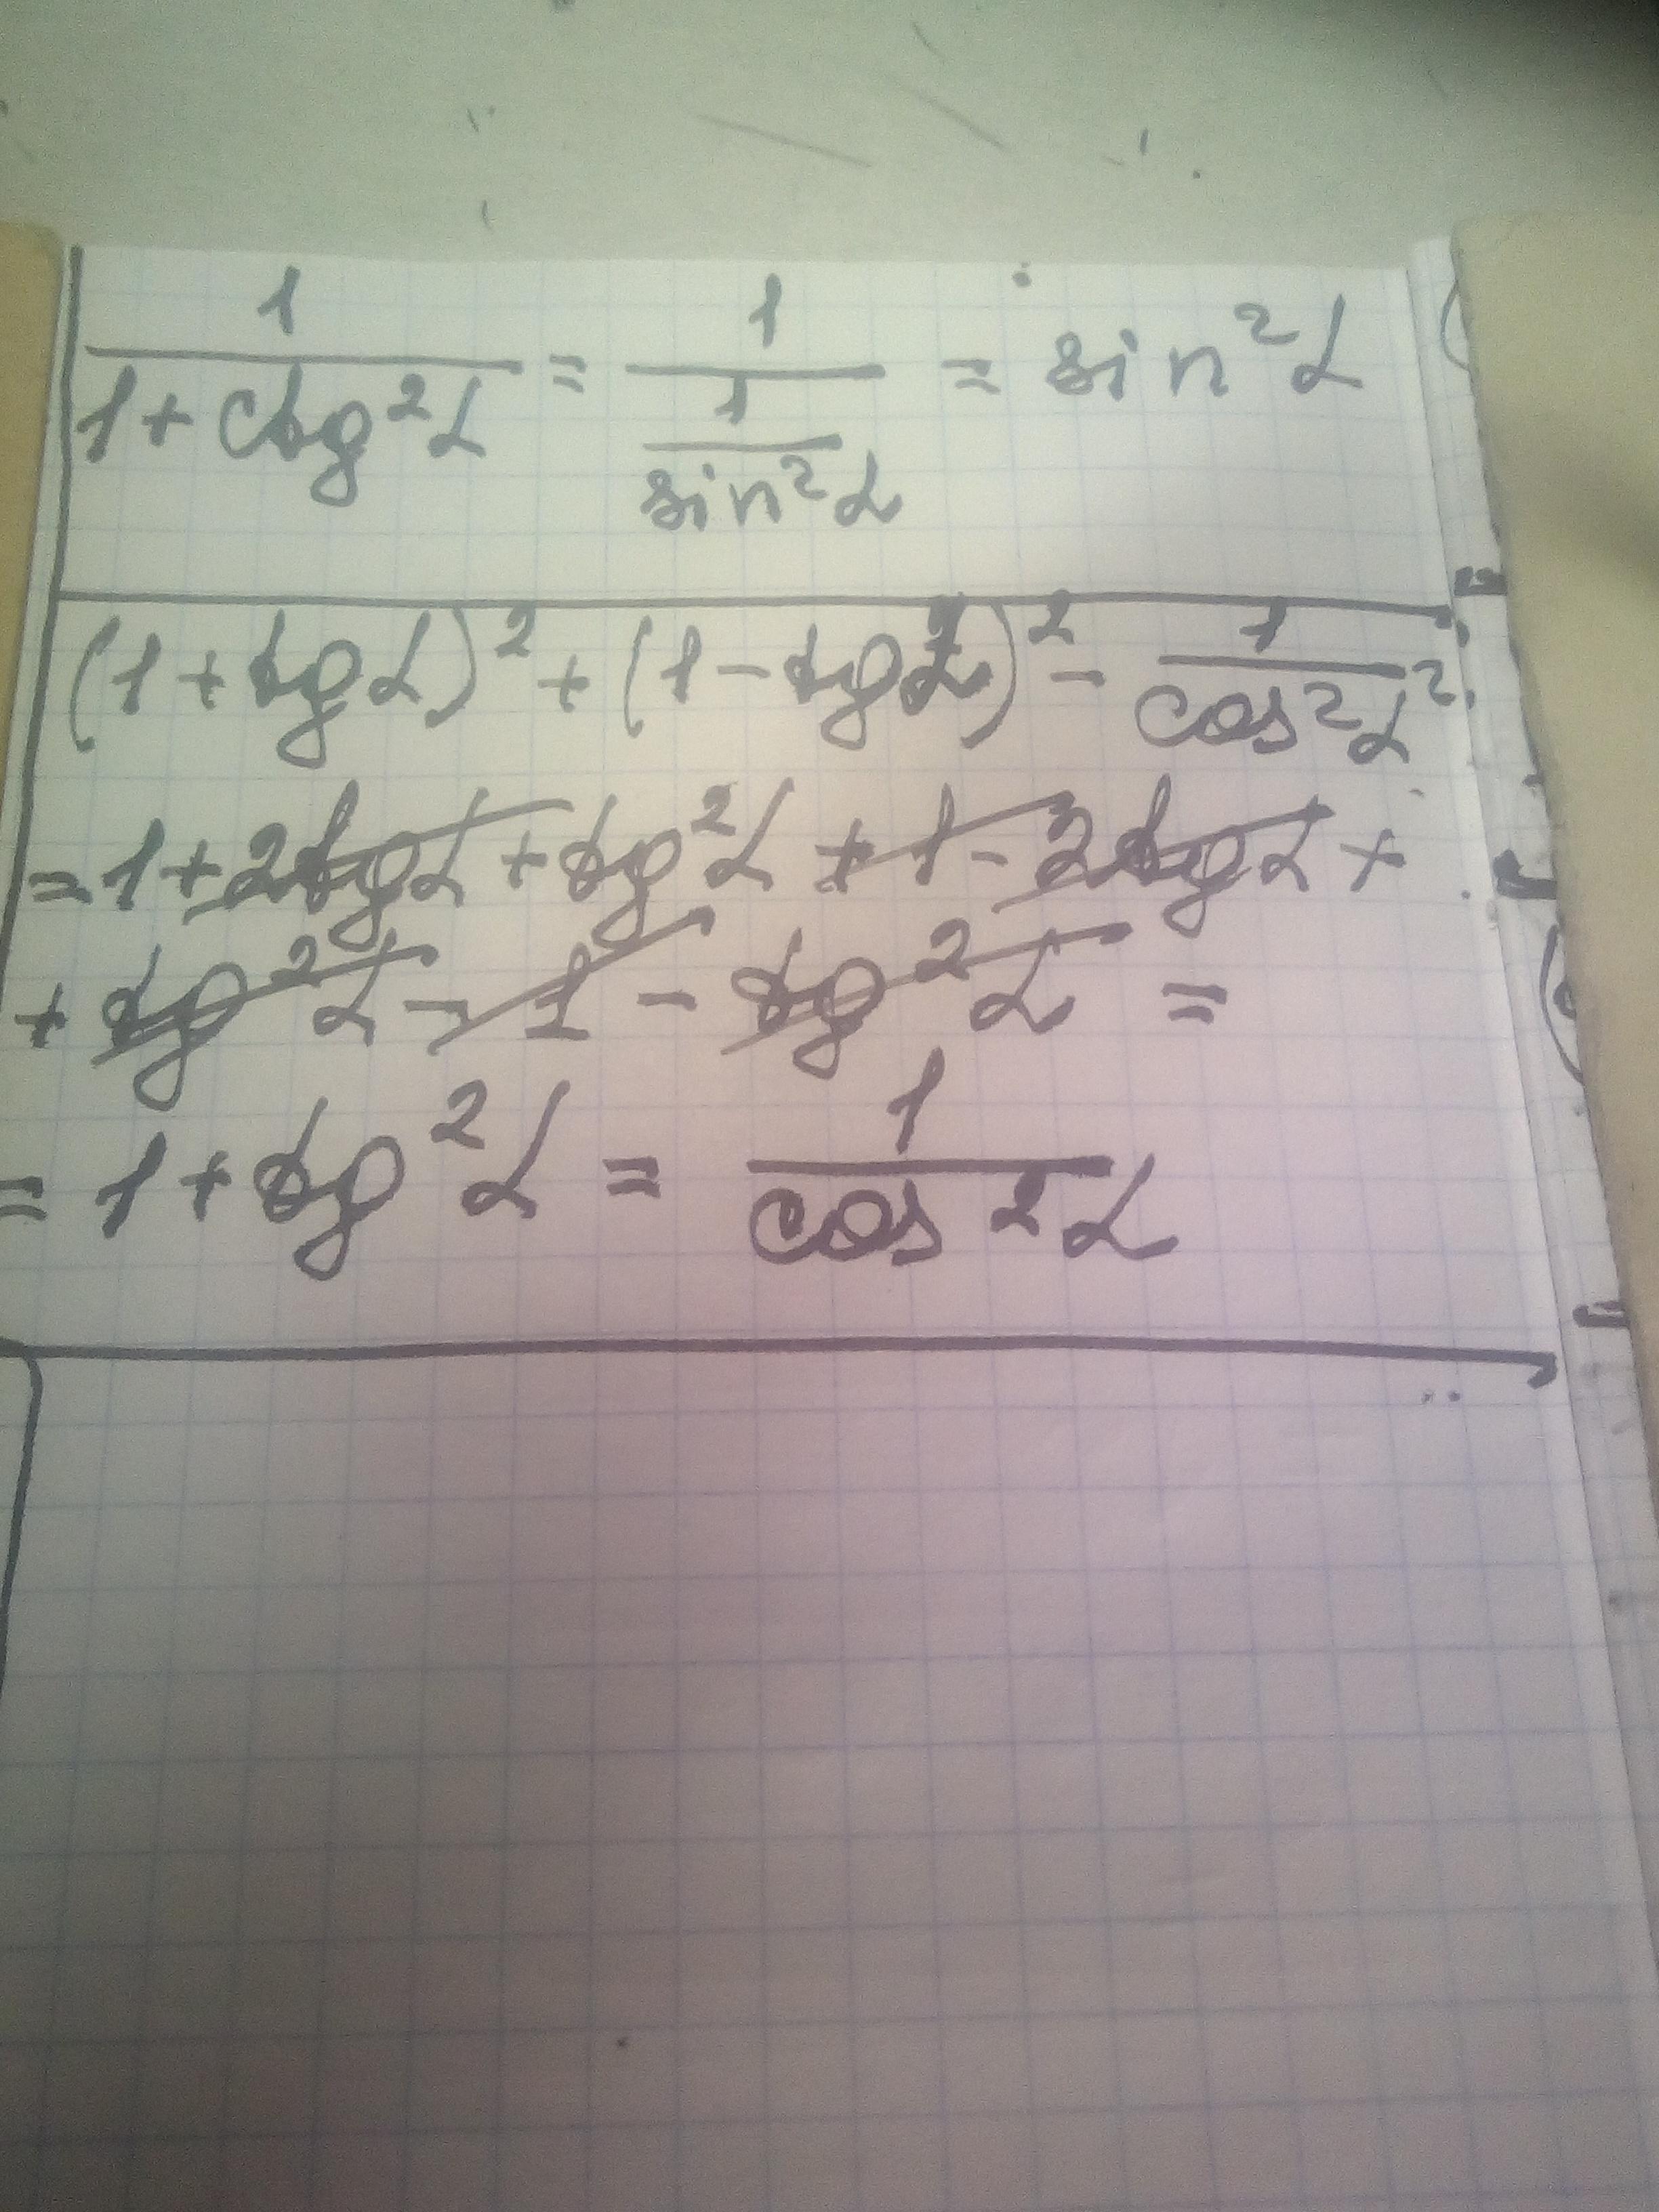 1/(1+ctg²α) = 1/(1/sin²α) = sin²α
(1+tgα)²+(1-tgα)²-1/cos²α =
=1+2tgα+tg²α+1-2tgα+
+tg²α-1-tg²α=
=1+tg²α=1/cos²α